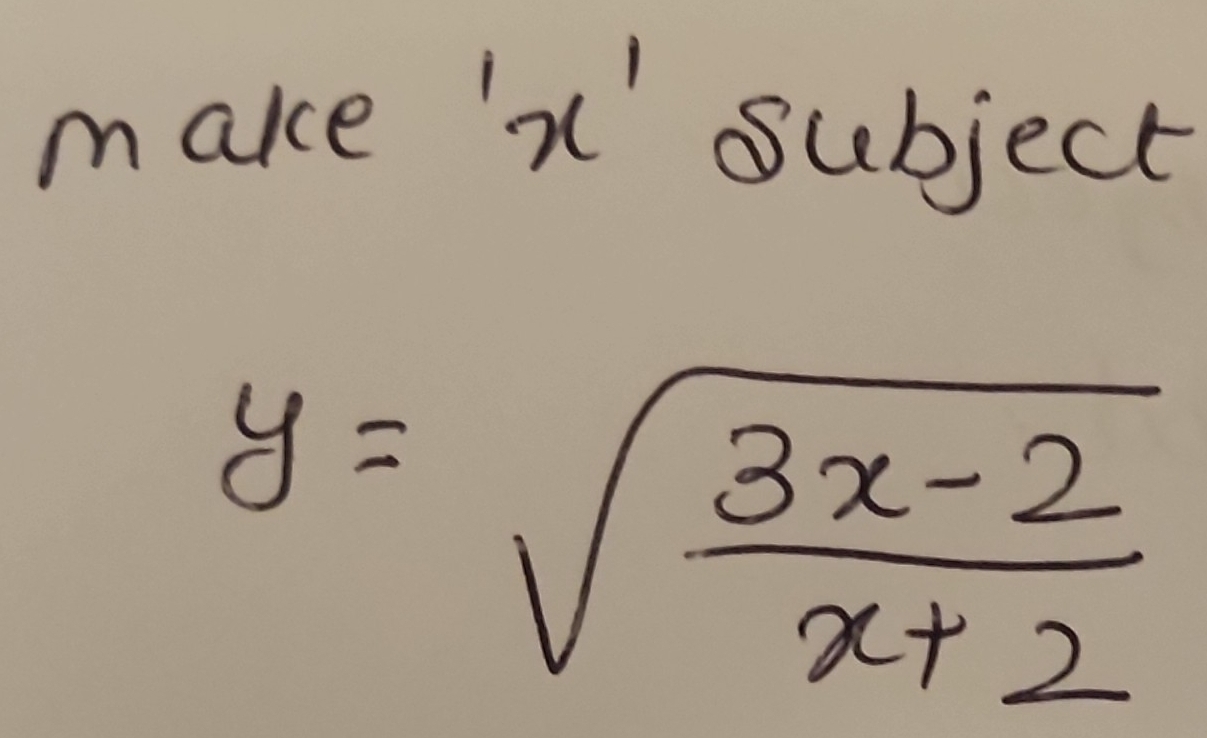 make 'x' subject
y = √((3x-2)/(x+2))